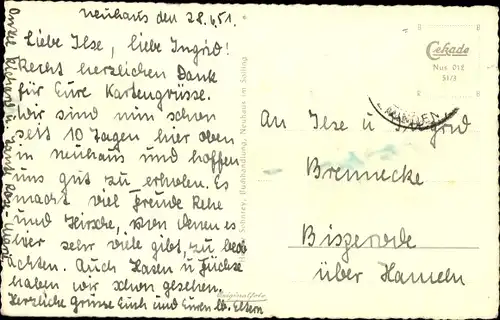 Neuhaus den 28.6.51.
Liebe Ilse, liebe Ingrid!
Recht herzlichen Dank
für Eure Kartengrüsse.
Wir sind nun schon
seit 10 Tagen hier oben
in Neuhaus und hoffen
uns gut zu erholen. Es
macht viel Freude Rehe
und Hirsche, von denen es
hier sehr viele gibt, zu beob
achten. Auch Hasen u. Füchse
haben wir schon gesehen.
Herzliche Grüsse Euch und Euren lb. Eltern
Onkel
Buchhandlung, Neuhaus im Solling
Originalfoto
Cekade
Nus 012
51/3
An Ilse u Ingrid
Brennecke
Bisperode
über Hameln